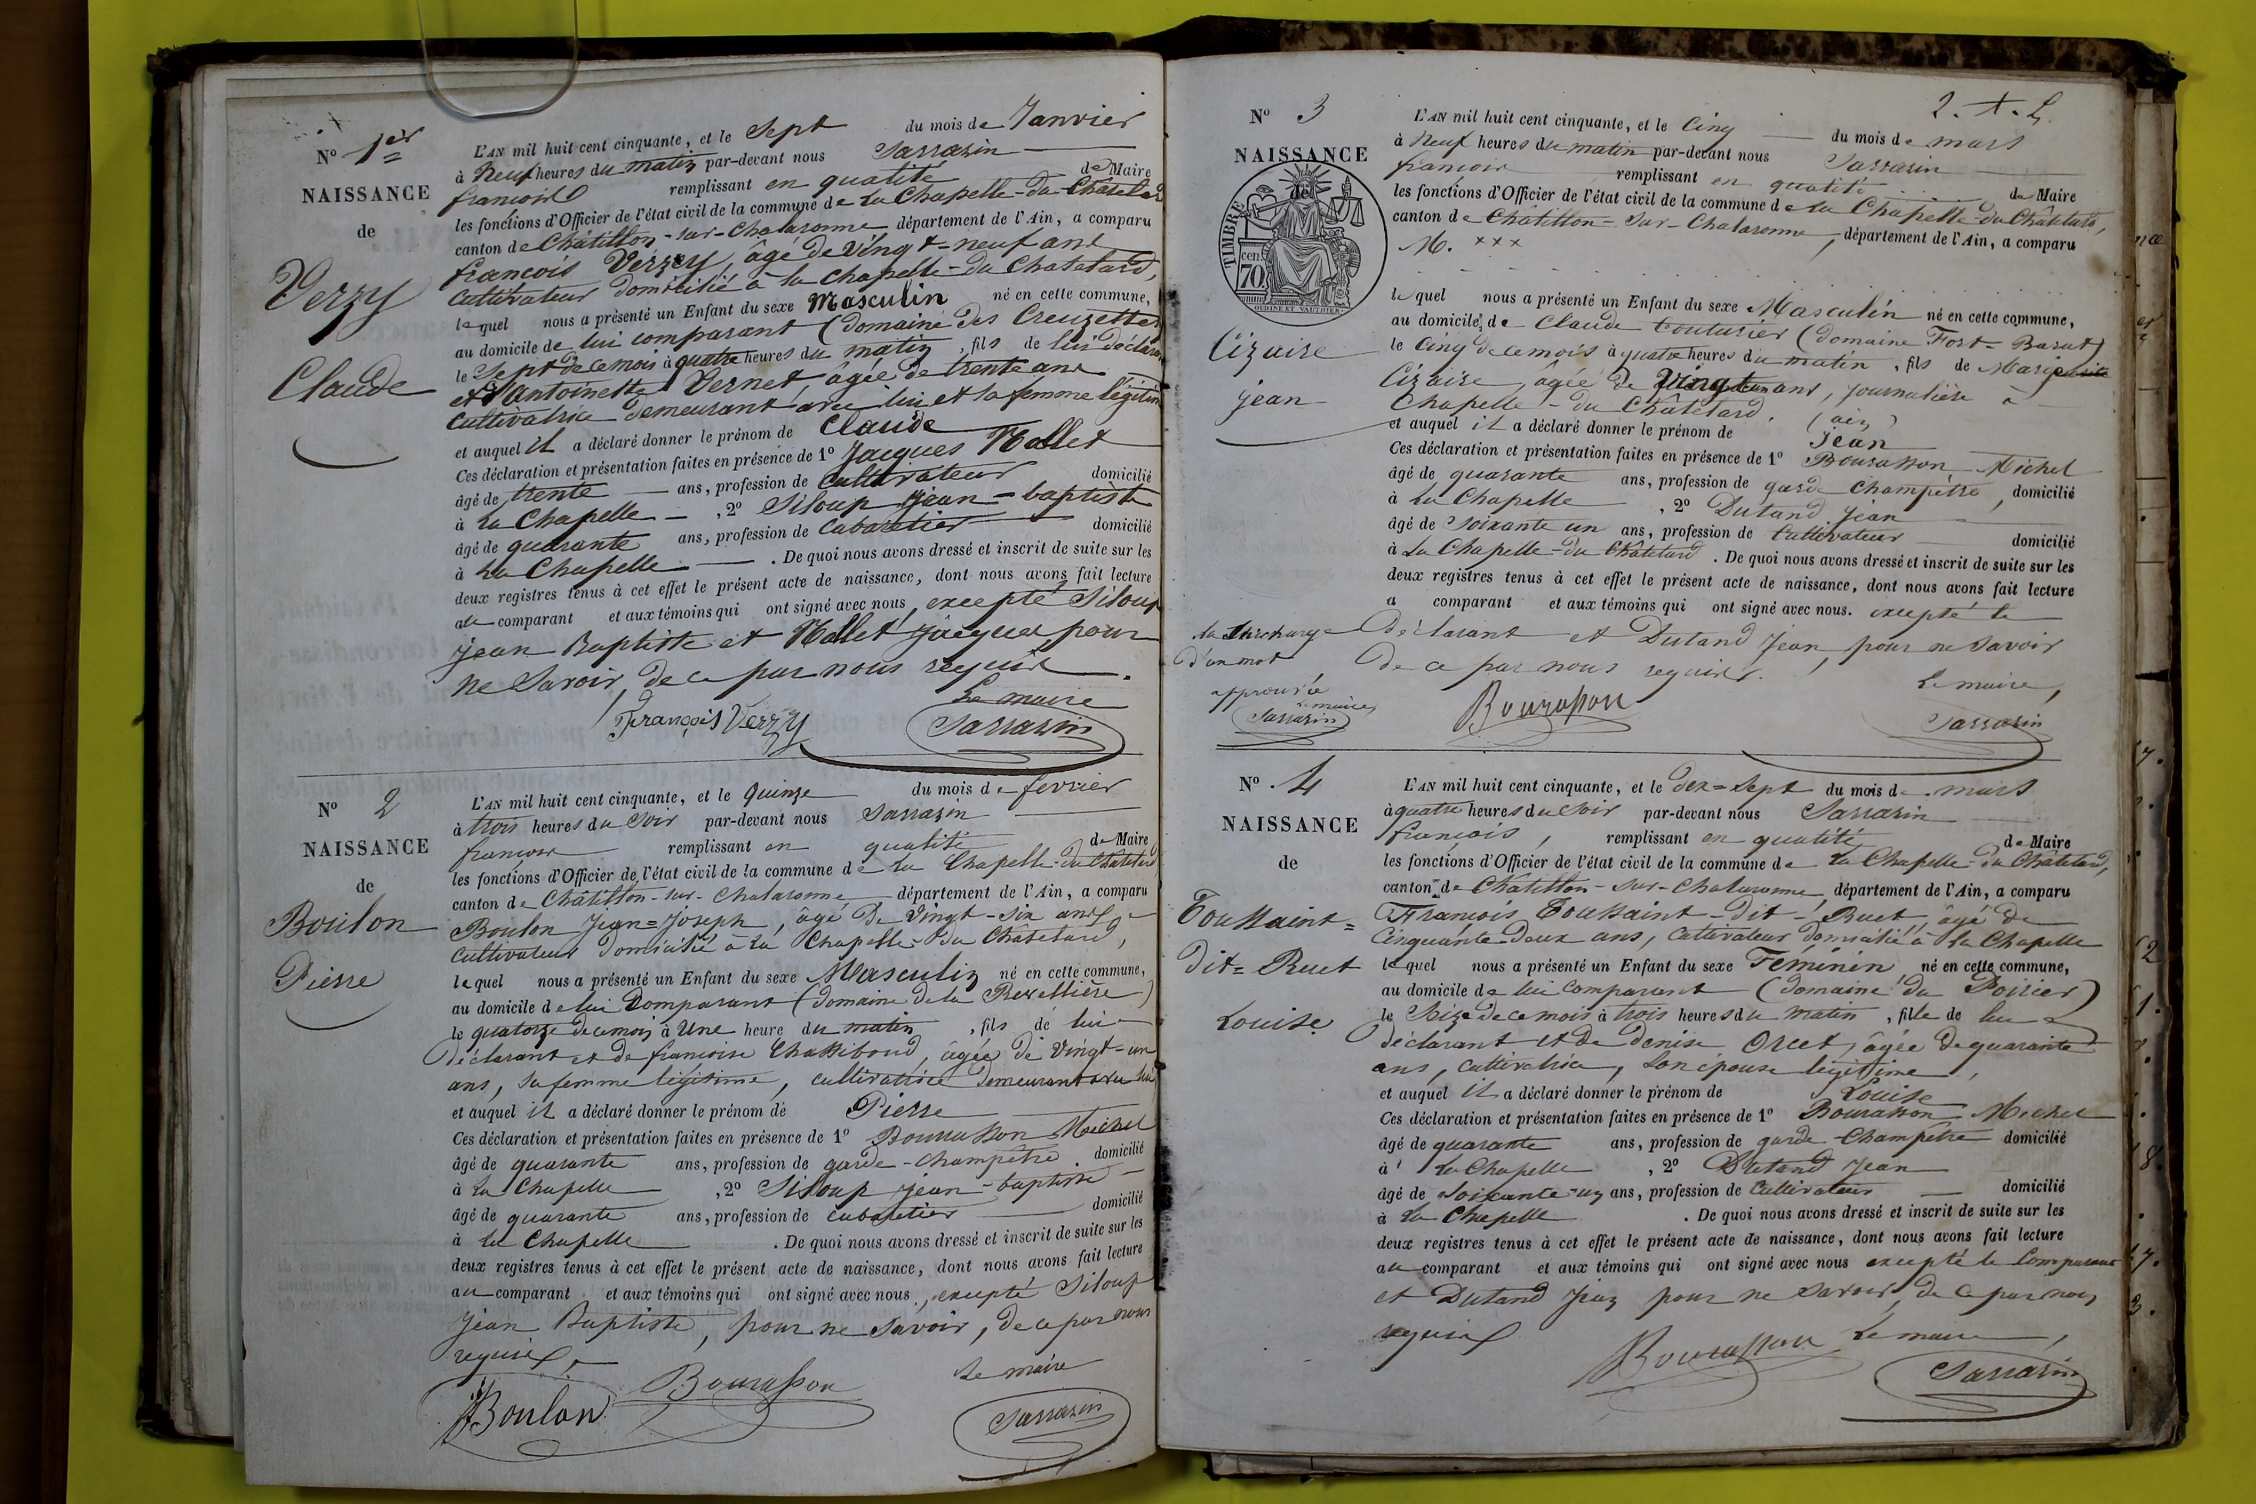 N° 1er
NAISSANCE
de
Verzy
Claude
L'AN mil huit cent cinquante, et le Sept du mois de Janvier
à Neuf heures du matin par-devant nous Sarrazin
françois remplissant en qualité de Maire
les fonctions d'Officier de l'état civil de la commune de La Chapelle-du-Châtelard
canton de Châtillon-sur-Chalaronne département de l'Ain, a comparu
françois Verzey, âgé de Vingt-neuf ans
Cultivateur domicilié à la chapelle-du Chatelard,
lequel nous a présenté un Enfant du sexe Masculin né en cette commune,
au domicile de lui comparant (domaine des Creuzettes
le Sept de ce mois à quatre heures du matin, fils de lui déclarant
et d'Antoinette Vernet, âgée de trente ans
Cultivatrice demeurant avec lui et sa femme légitime
et auquel il a déclaré donner le prénom de Claude
Ces déclaration et présentation faites en présence de 1° Jacques Mollet
âgé de trente ans, profession de Cultivateur domicilié
à La Chapelle, 2° Siloup Jean-baptiste
âgé de quarante ans, profession de Cabaretier domicilié
à La Chapelle. De quoi nous avons dressé et inscrit de suite sur les
deux registres tenus à cet effet le présent acte de naissance, dont nous avons fait lecture
au comparant et aux témoins qui ont signé avec nous, excepté Siloup
jean Baptiste et Mollet Jacques pour
ne Savoir, de ce par nous requis.
Le maire
François Verzy Sarrazin
N° 2
NAISSANCE
de
Boulon
Pierre
L'AN mil huit cent cinquante, et le quinze du mois de fevrier
à trois heures du Soir par-devant nous Sarrazin
francois remplissant en qualité de Maire
les fonctions d'Officier de l'état civil de la commune de La Chapelle-du-Châtelard
canton de Châtillon-sur-Chalaronne département de l'Ain, a comparu
Boulon Jean=Joseph, âgé De Vingt-six ans,
Cultivateur domicilié à la Chapelle-du Châtelard,
lequel nous a présenté un Enfant du sexe Masculin né en cette commune,
au domicile de lui Comparant (domaine De la Revellière)
le quatorze de ce mois à Une heure du matin, fils de lui
déclarant et de francoise Chassiboud, âgée de Vingt-un
ans, sa femme légitime, cultivatrice demeurant avec lui
et auquel il a déclaré donner le prénom de Pierre
Ces déclaration et présentation faites en présence de 1° Bourasson Michel
âgé de quarante ans, profession de garde-champêtre domicilié
à La Chapelle, 2° Siloup jean-baptiste
âgé de quarante ans, profession de cabaretier domicilié
à La Chapelle. De quoi nous avons dressé et inscrit de suite sur les
deux registres tenus à cet effet le présent acte de naissance, dont nous avons fait lecture
au comparant et aux témoins qui ont signé avec nous, excepté Siloup
Jean Baptiste, pour ne Savoir, de ce par nous
requis.
Le maire
Boulon Bourasson Sarrazin
2. +. L.
N° 3
NAISSANCE
de
TIMBRE
cen. 70
OUDINÉ ET VAUTHIER
Cizaire
jean
L'AN mil huit cent cinquante, et le Cinq du mois de mars
à Neuf heures du matin par-devant nous Sarrazin
francois remplissant en qualité de Maire
les fonctions d'Officier de l'état civil de la commune de La Chapelle-du-Châtelard,
canton de Châtillon=sur-Chalaronne, département de l'Ain, a comparu
M. xxx
lequel nous a présenté un Enfant du sexe Masculin né en cette commune,
au domicile de Claude Couturier (domaine Fort=Barat)
le Cinq de ce mois à quatre heures du matin, fils de Marie
Cizaire, âgée de Vingt ans, journalière à
Chapelle-du Châtelard. (ain)
et auquel il a déclaré donner le prénom de Jean
Ces déclaration et présentation faites en présence de 1° Bourasson Michel
âgé de quarante ans, profession de garde Champêtre, domicilié
à La Chapelle, 2° Dutand Jean
âgé de Soixante un ans, profession de Cultivateur domicilié
à La Chapelle-du Châtelard. De quoi nous avons dressé et inscrit de suite sur les
deux registres tenus à cet effet le présent acte de naissance, dont nous avons fait lecture
a comparant et aux témoins qui ont signé avec nous. excepté le
Déclarant et Dutand Jean, pour ne Savoir
de ce par nous requis.
la Surcharge
d'un mot
approuvée
Le maire,
Sarrazin
Le maire,
Bourasson Sarrazin
N° 4
NAISSANCE
de
Toussaint=
dit=Ruet
Louise
L'AN mil huit cent cinquante, et le dix=Sept du mois de mars
à quatre heures du Soir par-devant nous Sarrazin
françois, remplissant en qualité de Maire
les fonctions d'Officier de l'état civil de la commune de La Chapelle-du Châtelard,
canton de Châtillon-sur-Chalaronne, département de l'Ain, a comparu
François Toussaint-dit-Ruet, âgé de
Cinquante-Deux ans, Cultivateur domicilié à la Chapelle
lequel nous a présenté un Enfant du sexe Féminin né en cette commune,
au domicile de lui comparant (domaine du Poirier)
le Seize de ce mois à trois heures du matin, fille de lui
déclarant et de denise Orcet, âgée de quarante
ans, cultivatrice, Son épouse légitime,
et auquel il a déclaré donner le prénom de Louise
Ces déclaration et présentation faites en présence de 1° Bourasson Michel
âgé de quarante ans, profession de garde-Champêtre domicilié
à La Chapelle, 2° Dutand Jean
âgé de Soixante-un ans, profession de Cultivateur domicilié
à La Chapelle. De quoi nous avons dressé et inscrit de suite sur les
deux registres tenus à cet effet le présent acte de naissance, dont nous avons fait lecture
au comparant et aux témoins qui ont signé avec nous excepté le Comparant
et Dutand Jean pour ne Savoir, de ce par nous
requis
Le maire,
Bourasson Sarrazin